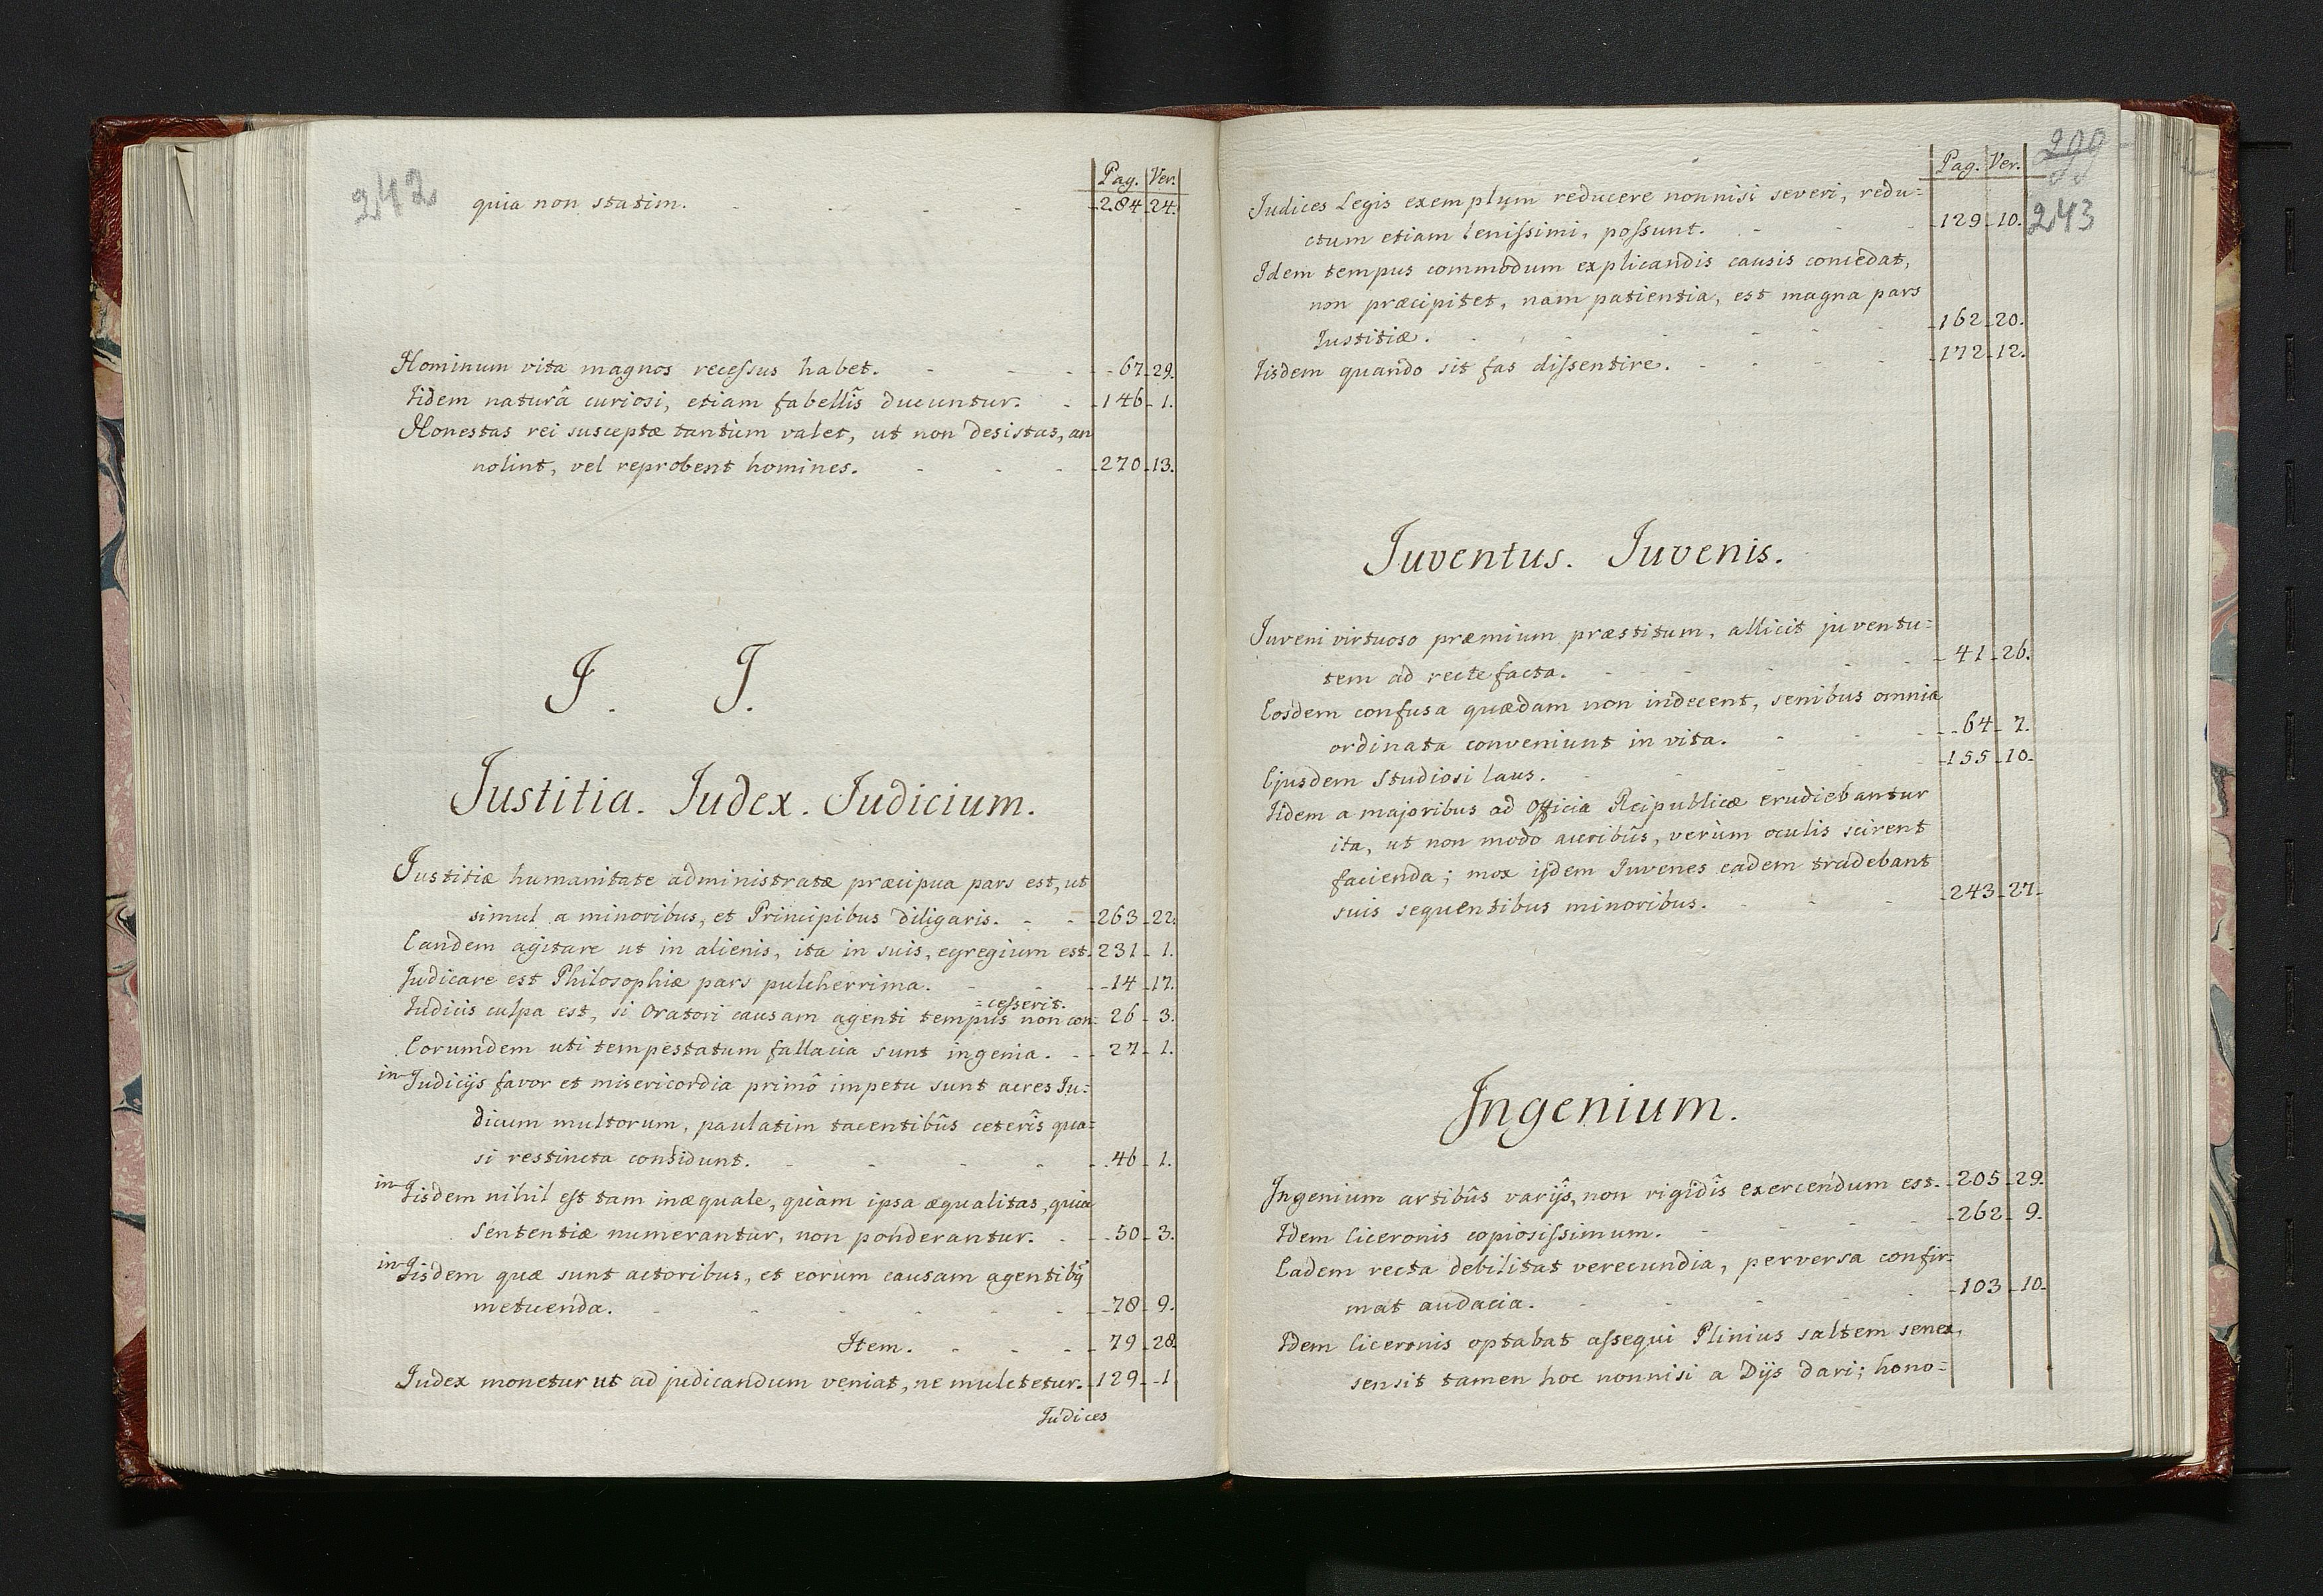 242
Pag. Ver.
quia non statim. - - - - 284 24.
Hominum vita magnos recessus habet. - - - 67 29.
Iidem naturâ curiosi, etiam fabellîs ducuntur. - 146 1.
Honestas rei susceptæ tantùm valet, ut non desistas, an
nolint, vel reprobent homines. - - - 270 13.
I. I.
Iustitia. Iudex. Iudicium.
Iustitiæ humanitate administratæ præcipua pars est, ut
simul a minoribus, et Principibus diligaris. - - 263 22.
Eandem agitare ut in alienis, ita in suis, egregium est. 231 1.
Judicare est Philosophiæ pars pulcherrima. - - 14 17.
=cesserit.
Iudicis culpa est, si Oratori causam agenti tempus non con- 26 3.
Eorumdem uti tempestatum fallacia sunt ingenia. - 27 1.
in Iudicijs favor et misericordia primô impetu sunt acres Iu=
dicum multorum, paulatim tacentibûs ceterîs qua=
si restincta considunt. - - - 46 1.
in Iisdem nihil est tam inæquale, quàm ipsa æqualitas, quia
sententiæ numerantur, non ponderantur. - 50 3.
in Iisdem quæ sunt actoribus, et eorum causam agentibq
metuenda. - - - - - 78 9.
Item. - - - 79 28.
Iudex monetur ut ad judicandum veniat, ne mulctetur. 129 1
Iudices
299
Pag. Ver.
243
Iudices Legis exemplum reducere nonnisi severi, redu=
ctum etiam lenissimi, possunt. - - - 129 10.
Idem tempus commodum explicandis causis concedat,
non præcipitet, nam patientia, est magna pars
Iustitiæ. - - - - - 162 20.
Iisdem quando sit fas dissentire. - - - 172 12.
Iuventus. Iuvenis.
Iuveni virtuoso præmium præstitum, allicit juventu=
tem ad recte facta. - - - - 41 26.
Eosdem confusa quædam non indecent, senibus omnia
ordinata conveniunt in vita. - - - 64 7.
Ejusdem Studiosi laus. - - - 155 10.
Iidem a majoribus ad Officia Reipublicæ erudiebantur
ita, ut non modo auribûs, verùm oculis scirent
facienda; mox ijdem Iuvenes eadem tradebant
suis sequentibus minoribus. - - - 243 27.
Ingenium.
Ingenium artibûs varijs, non rigidîs exercendum est. 205 29.
Idem Ciceronis copiosissimum. - - - 262 9.
Eadem recta debilitat verecundia, perversa confir=
mat audacia. - - - - 103 10.
Idem Ciceronis optabat assequi Plinius saltem senex,
sensit tamen hoc nonnisi a Dijs dari; hono=